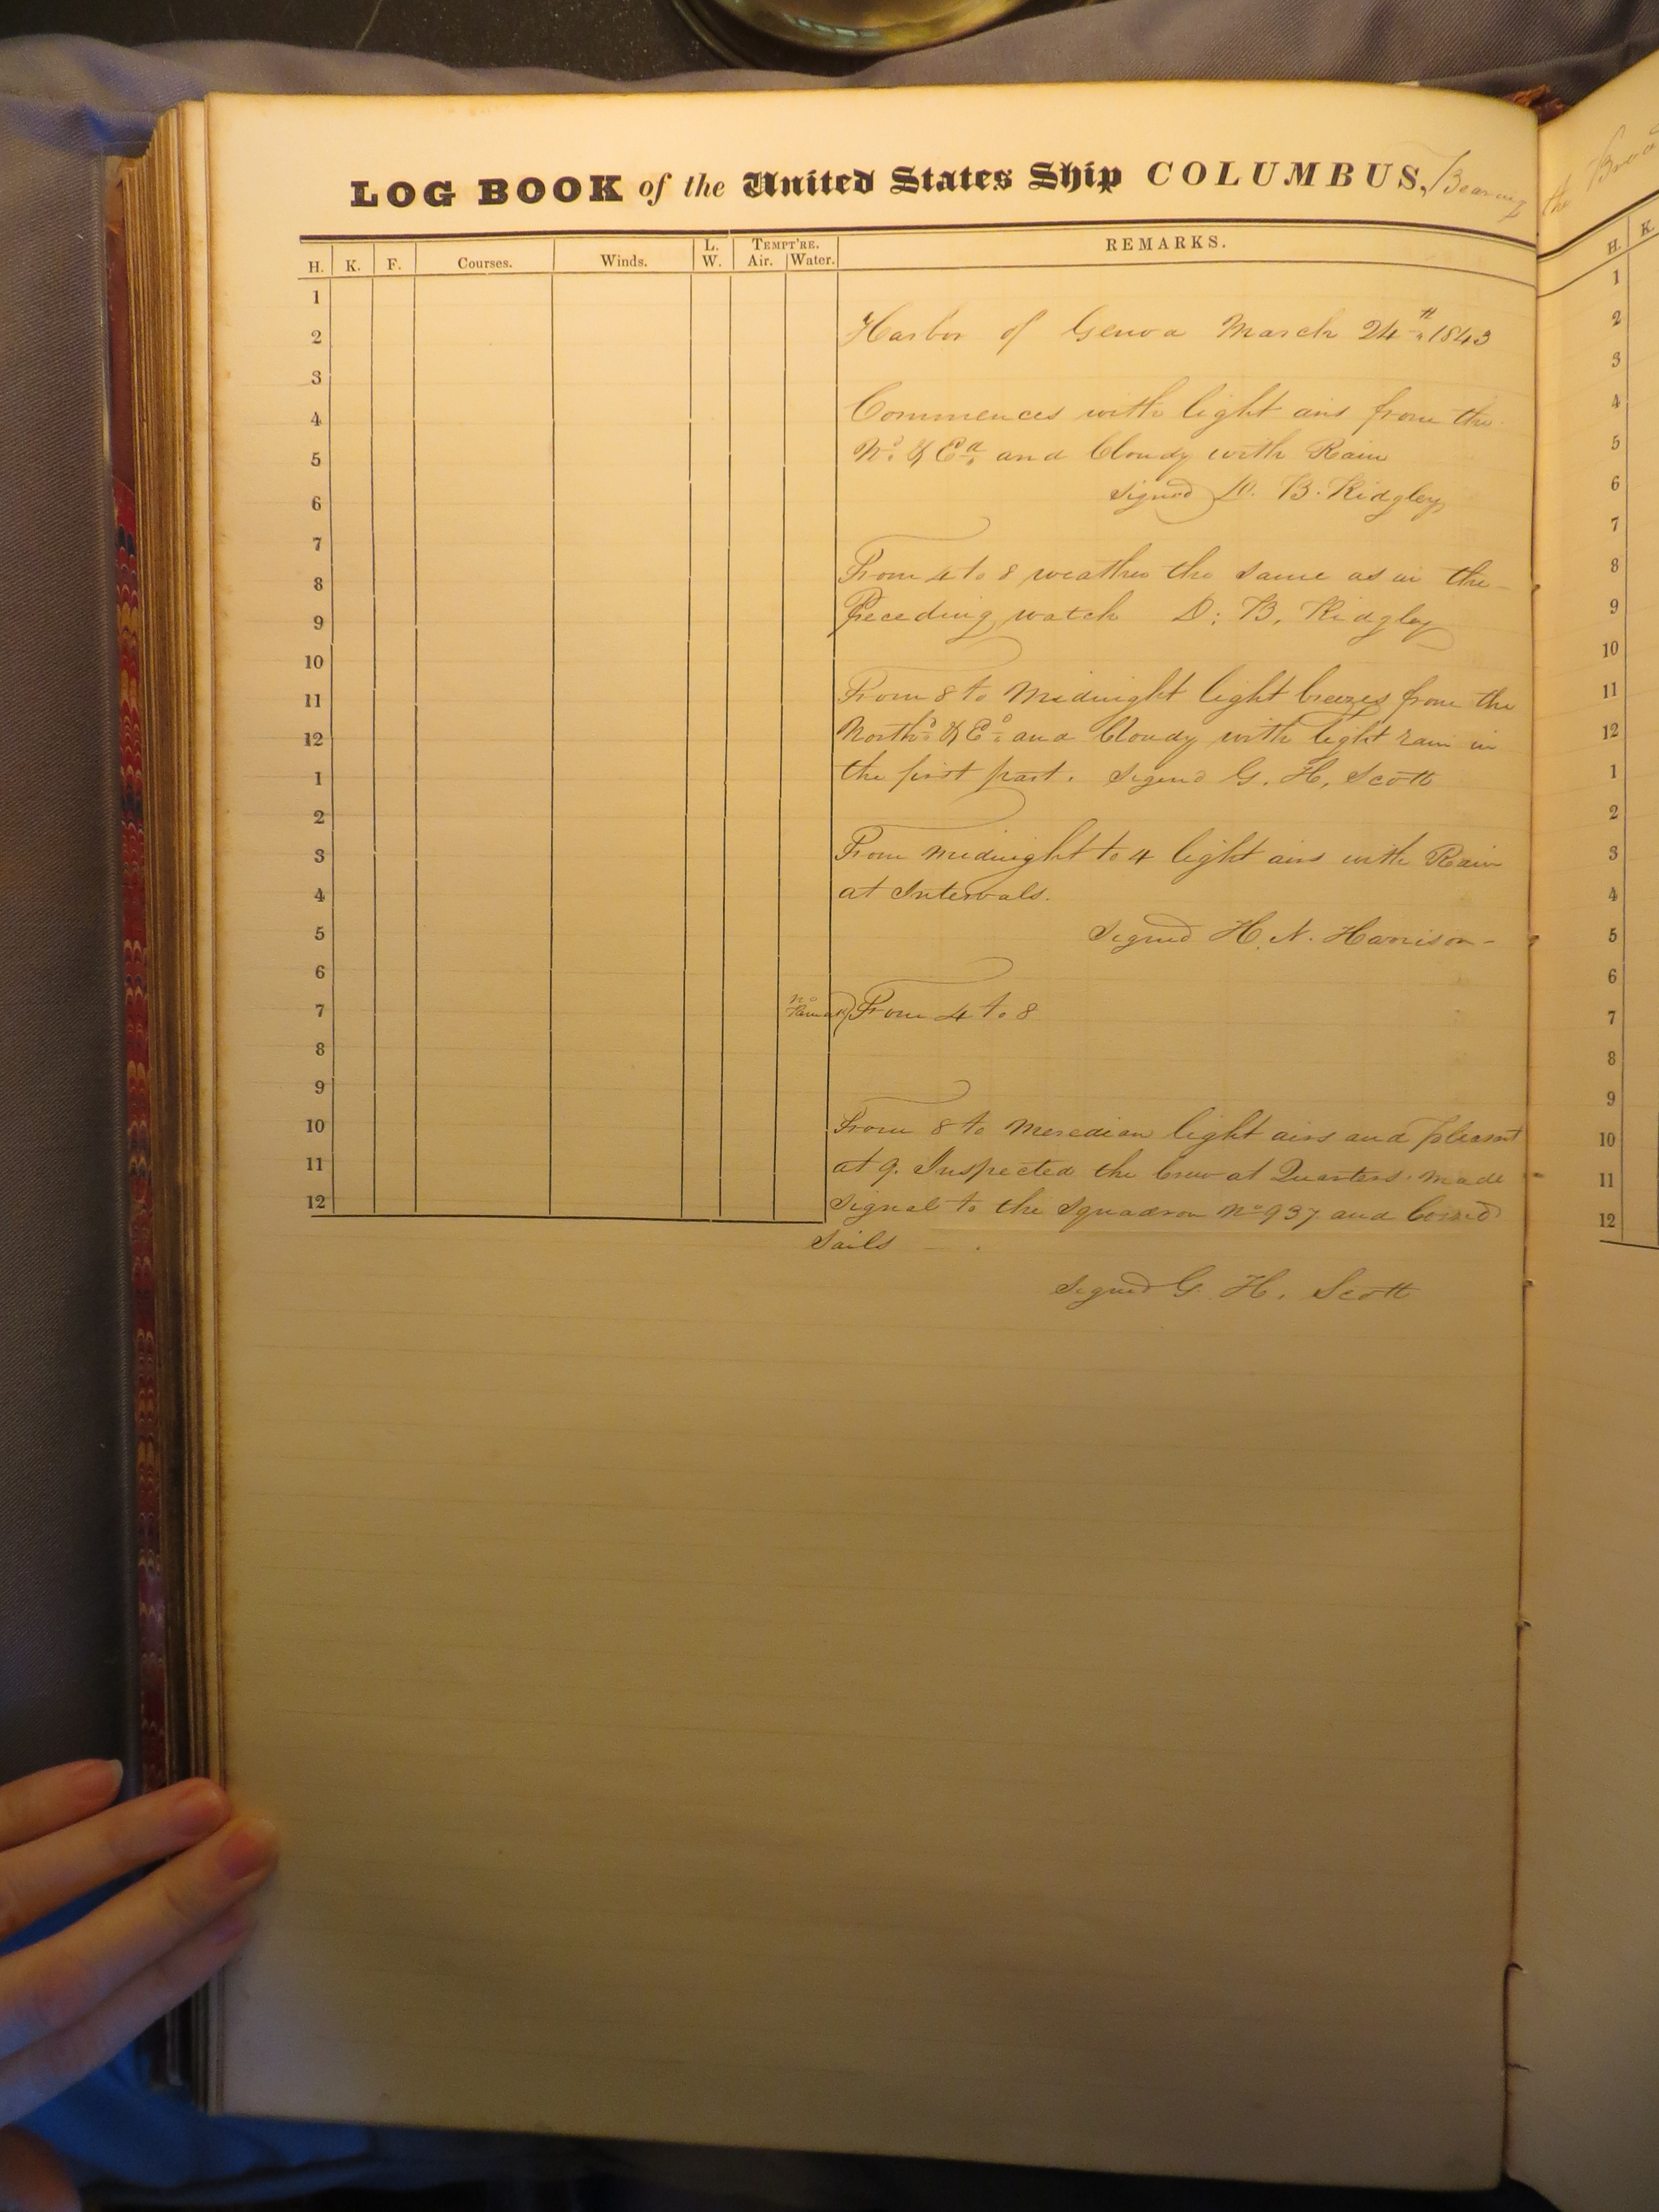 LOG BOOK of the United States Ship COLUMBUS, Bearing
H. K. F. Courses. Winds. L. W. TEMPT'RE. Air. Water. REMARKS.
1
2 Harbor of Genoa March 24th 1843
3
4 Commences with light airs from the
5 Nd & Ed and Cloudy with Rain
6 Signed D. B. Ridgley
7
8 From 4 to 8 weather the same as in the
9 Preceding watch D. B. Ridgley
10
11 From 8 to Midnight light breezes from the
12 Northd & Ed and Cloudy with light rain in
1 the first part. Signed G. H. Scott
2
3 From Midnight to 4 light airs with Rain
4 at Intervals.
5 Signed H. N. Harrison
6
7 no Remark From 4 to 8
8
9
10 From 8 to Meredian light airs and pleasant
11 at 9. Inspected the Crew at Quarters. Made
12 Signal to the Squadron No 937 and
Sails
Signed G. H. Scott
the
H. K.
1
2
3
4
5
6
7
8
9
10
11
12
1
2
3
4
5
6
7
8
9
10
11
12